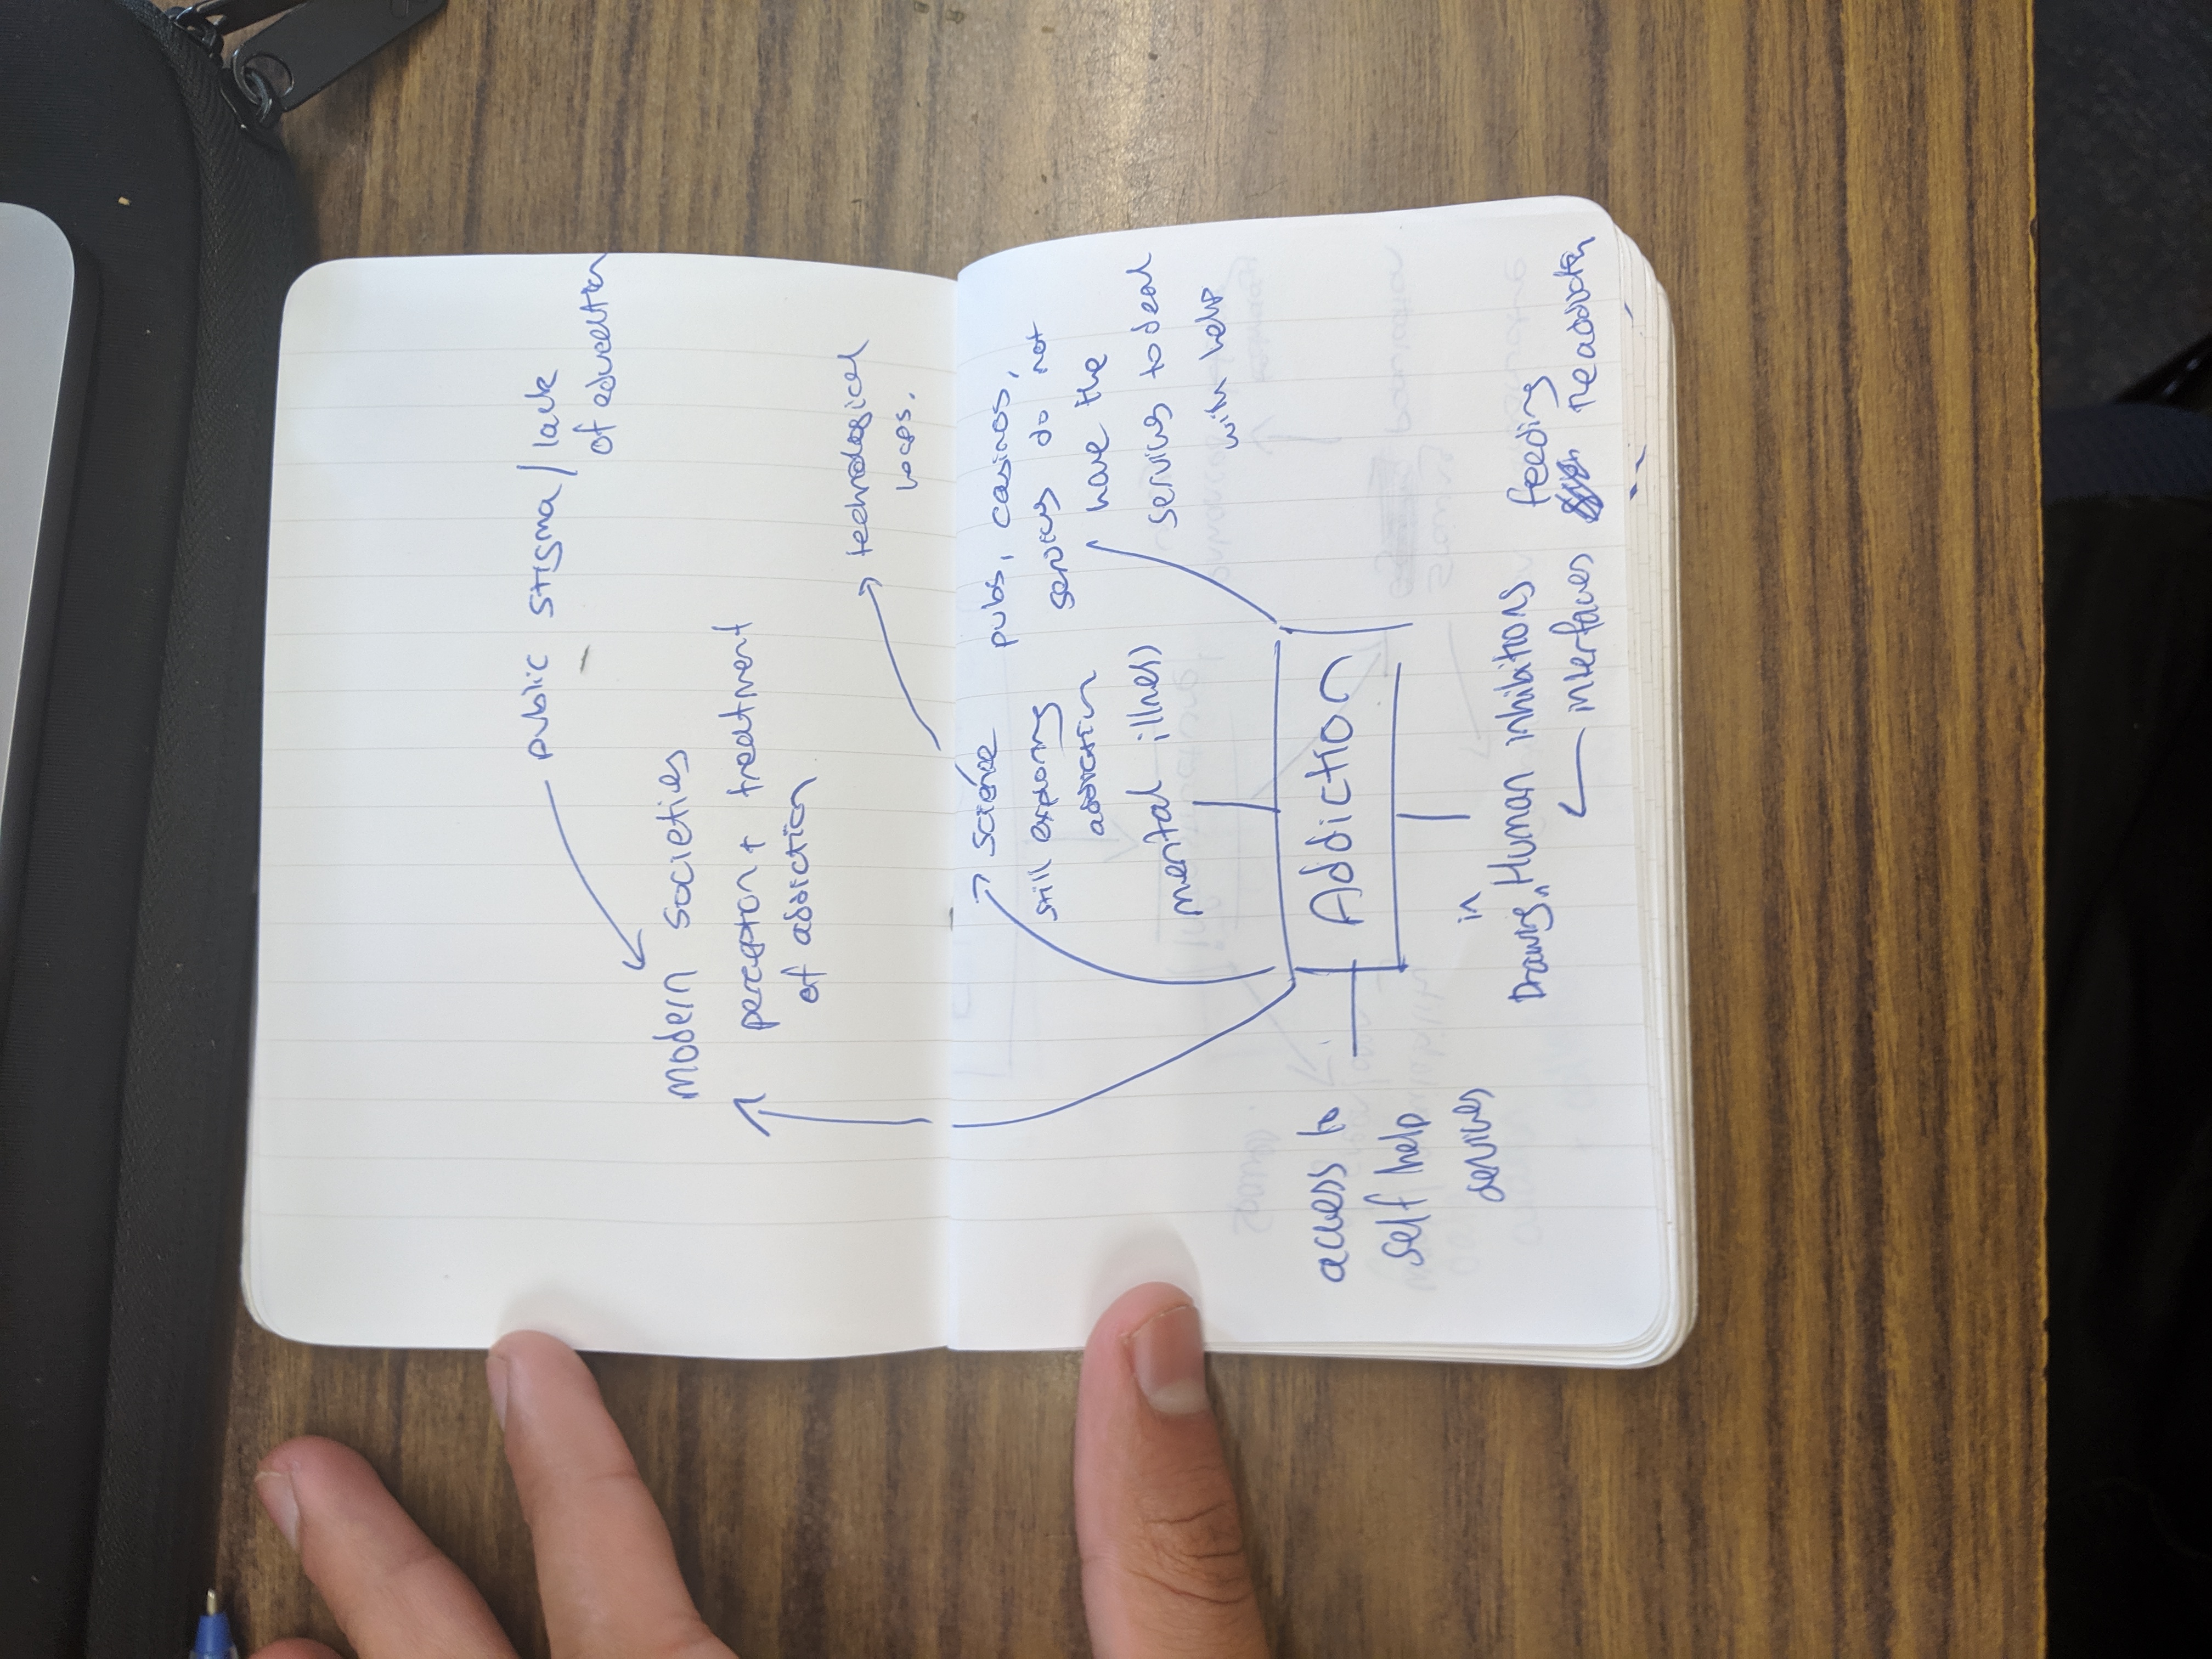 public stigma / lack
of education
modern societies
perception + treatment
of addiction
technological
loops.
science
still exploring
addiction
pubs, casinos,
services do not
have the
services to deal
with help
mental illness
Addiction
access to
self help
devices
in
Drawing Human inhibitions
feeding
interfaces the addiction